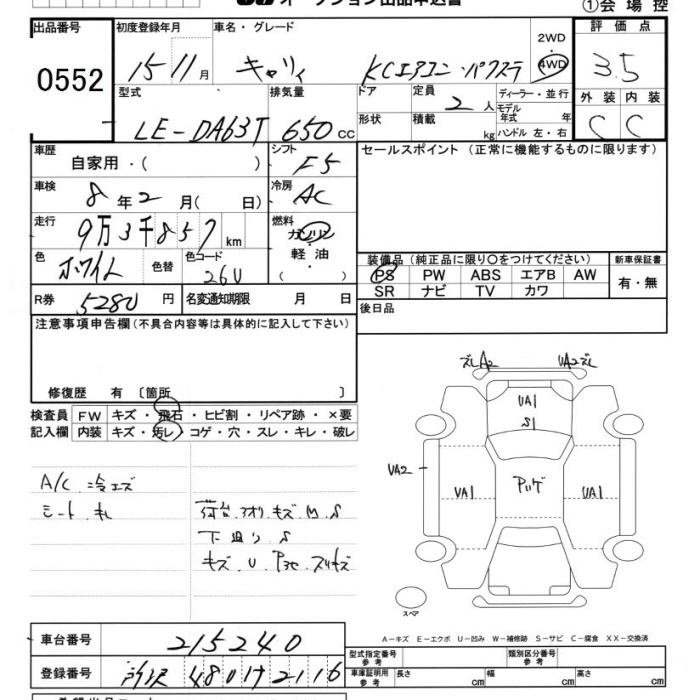 オークション出品申込書
①会場控
出品番号
0552
初度登録年月
15 11月
車名・グレード
キャリィ
KCエアコン・パワステ
2WD
4WD
評価点
3.5
外装 内装
C C
型式
LE-DA63T
排気量
650cc
ドア
形状
定員
2人
積載
kg
ディーラー・並行
モデル年式 年
ハンドル 左・右
車歴
自家用・( )
シフト
F5
車検
8年2月( 日)
冷房
AC
走行
9万3千857km
燃料
ガソリン
軽油
( )
色
ホワイト
色替
色コード
26U
R券
5280円
名変通知期限 月 日
セールスポイント (正常に機能するものに限ります)
装備品 (純正品に限り○をつけてください)
PS PW ABS エアB AW
SR ナビ TV カワ
新車保証書
有・無
後日品
注意事項申告欄(不具合内容等は具体的に記入して下さい)
修復歴 有 〔箇所 〕
検査員
記入欄
FW キズ・飛石・ヒビ割・リペア跡・×要
内装 キズ・汚レ・コゲ・穴・スレ・キレ・破レ
A/C 冷エズ
シート キレ
荷台アオリ キズ M S
下廻り S
ズレA2
UA2ズレ
UA1
S1
UA2
UA1
UA1
スペア
A-キズ E-エクボ U-凹み W-補修跡 S-サビ C-腐食 XX-交換済
車台番号
215240
登録番号
所沢 480
2116
型式指定番号
参考
類別区分番号
参考
車庫証明用
参考
長さ cm
幅 cm
高さ cm